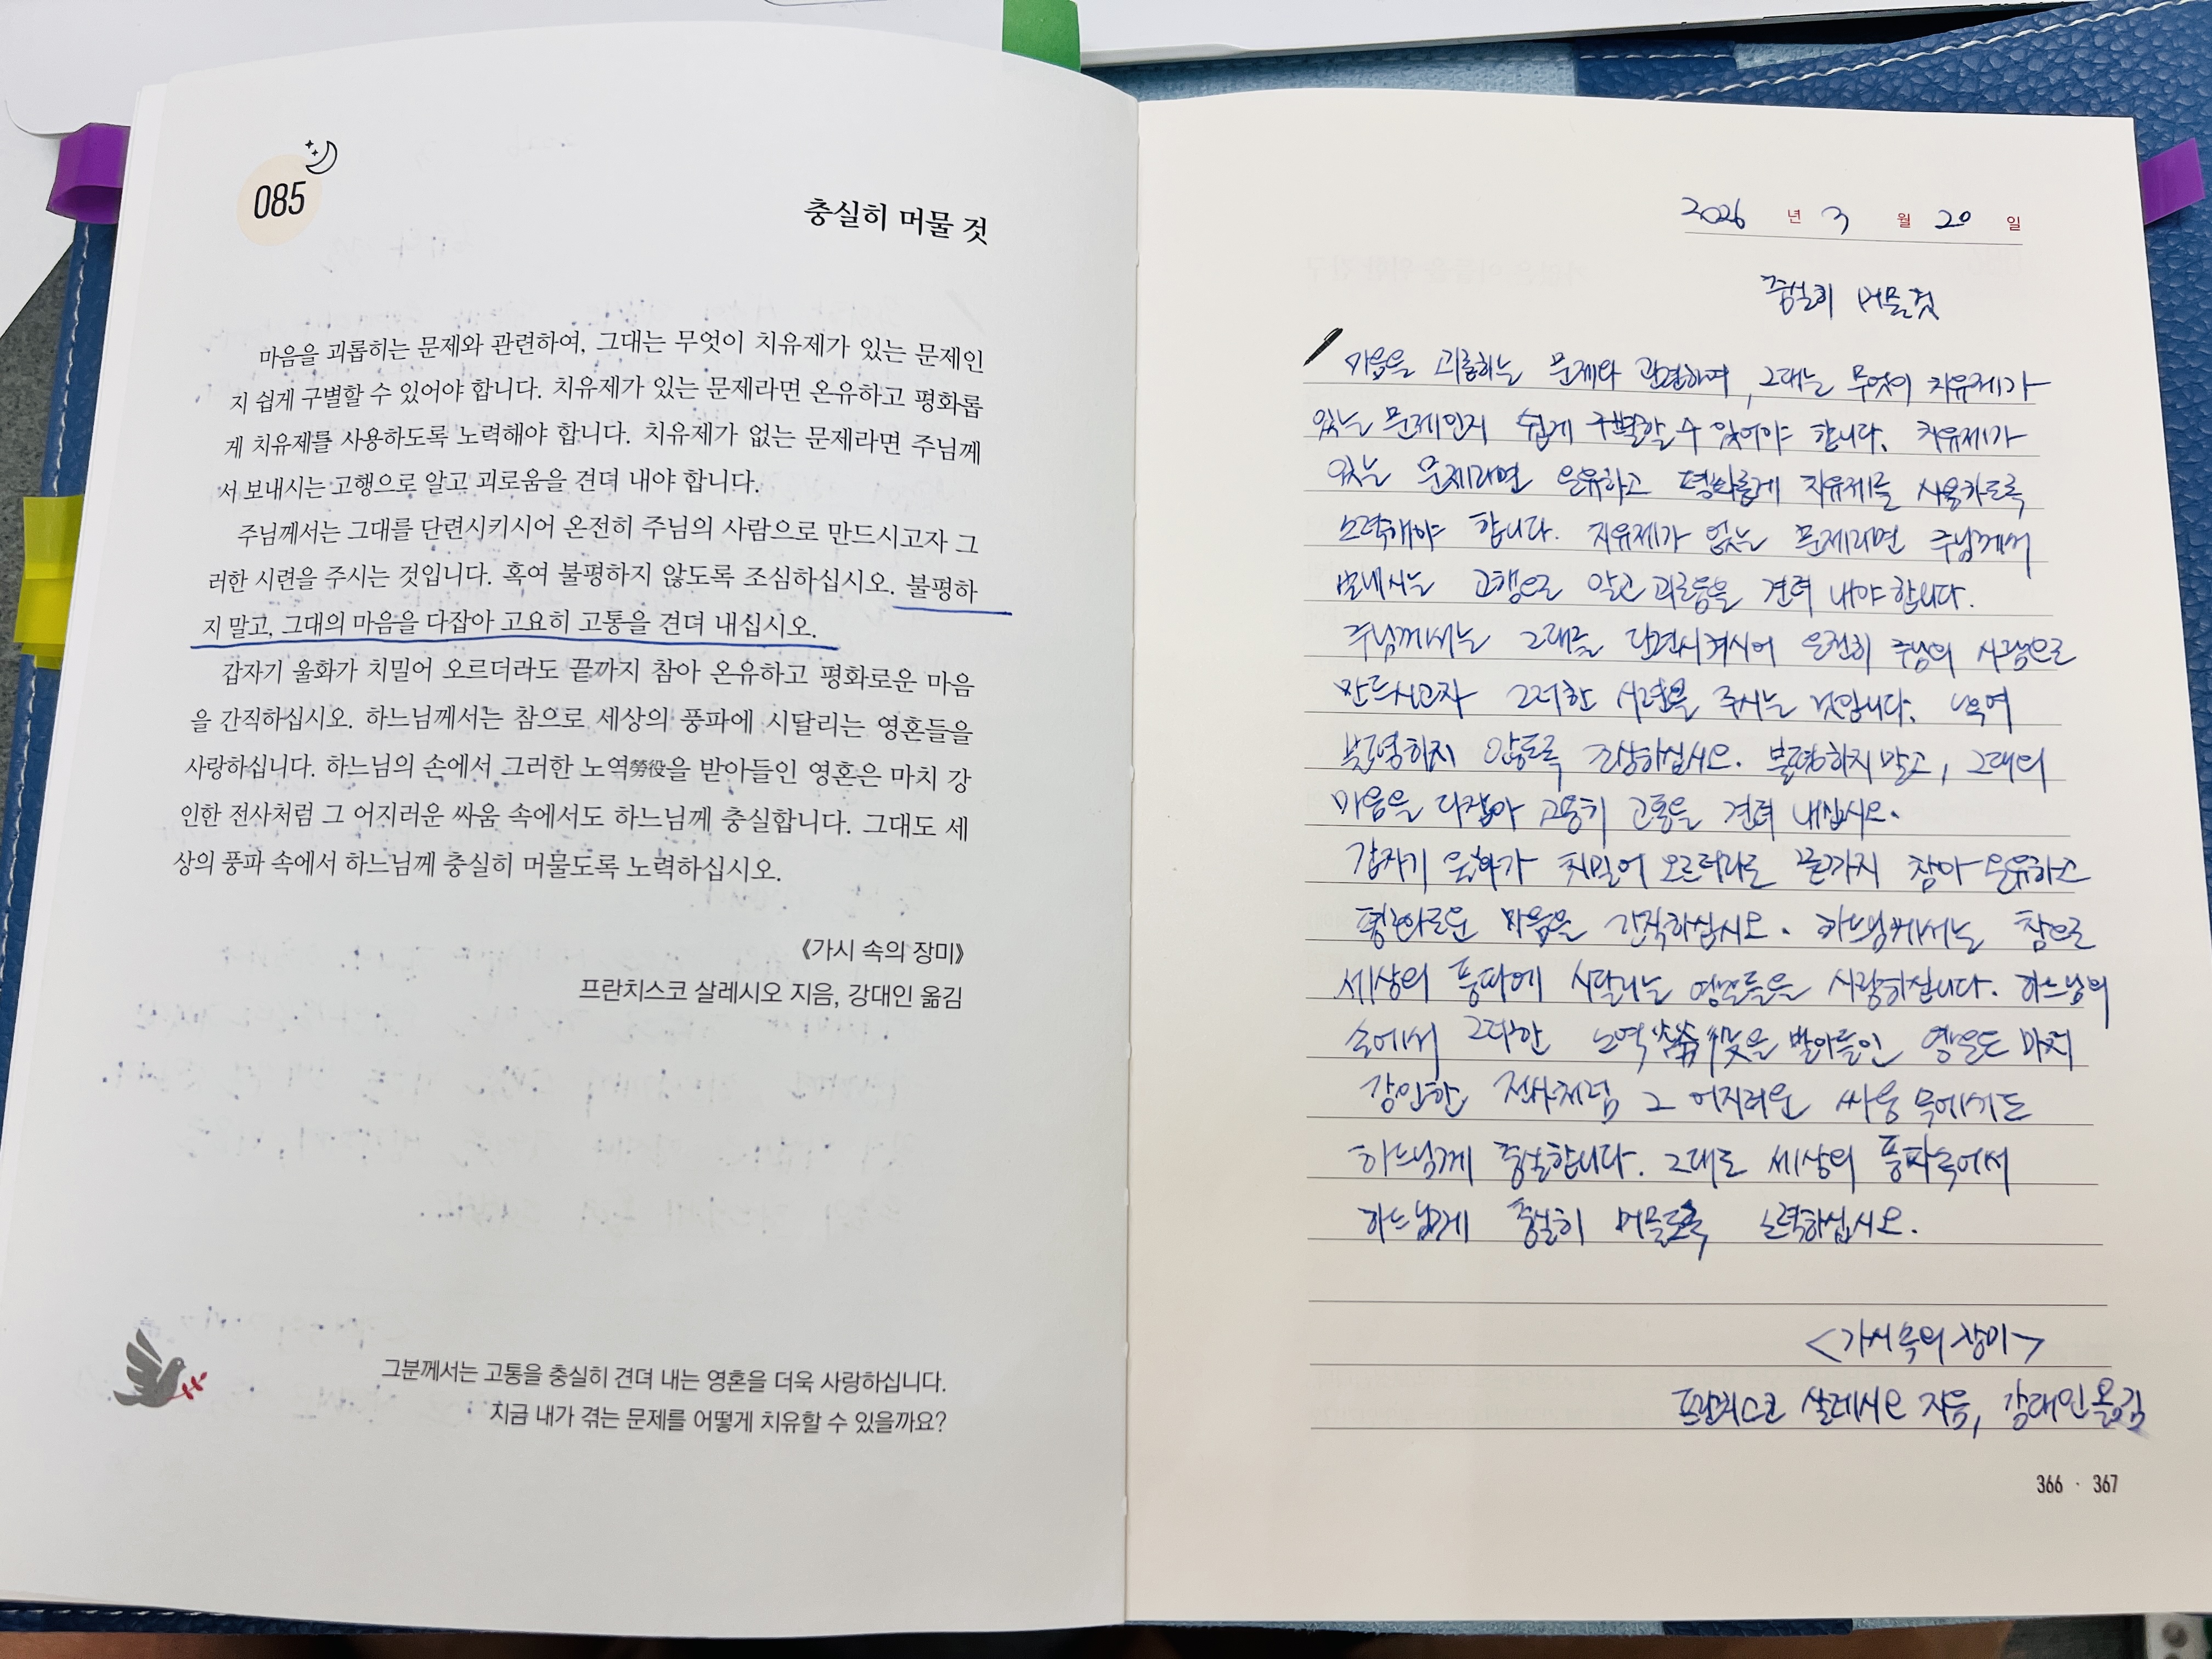 085
충실히 머물 것
마음을 괴롭히는 문제와 관련하여, 그대는 무엇이 치유제가 있는 문제인
지 쉽게 구별할 수 있어야 합니다. 치유제가 있는 문제라면 온유하고 평화롭
게 치유제를 사용하도록 노력해야 합니다. 치유제가 없는 문제라면 주님께
서 보내시는 고행으로 알고 괴로움을 견뎌 내야 합니다.
주님께서는 그대를 단련시키시어 온전히 주님의 사람으로 만드시고자 그
러한 시련을 주시는 것입니다. 혹여 불평하지 않도록 조심하십시오. 불평하
지 말고, 그대의 마음을 다잡아 고요히 고통을 견뎌 내십시오.
갑자기 울화가 치밀어 오르더라도 끝까지 참아 온유하고 평화로운 마음
을 간직하십시오. 하느님께서는 참으로 세상의 풍파에 시달리는 영혼들을
사랑하십니다. 하느님의 손에서 그러한 노역勞役을 받아들인 영혼은 마치 강
인한 전사처럼 그 어지러운 싸움 속에서도 하느님께 충실합니다. 그대도 세
상의 풍파 속에서 하느님께 충실히 머물도록 노력하십시오.
《가시 속의 장미》
프란치스코 살레시오 지음, 강대인 옮김
그분께서는 고통을 충실히 견뎌 내는 영혼을 더욱 사랑하십니다.
지금 내가 겪는 문제를 어떻게 치유할 수 있을까요?
2026 년 3 월 20 일
충실히 머물 것
마음을 괴롭히는 문제와 관련하여, 그대는 무엇이 치유제가
있는 문제인지 쉽게 구별할 수 있어야 합니다. 치유제가
있는 문제라면 온유하고 평화롭게 치유제를 사용하도록
노력해야 합니다. 치유제가 없는 문제라면 주님께서
보내시는 고행으로 알고 괴로움을 견뎌 내야 합니다.
주님께서는 그대를 단련시켜시어 온전히 주님의 사람으로
만드시고자 그러한 시련을 주시는 것입니다. 혹여
불평하지 않도록 조심하십시오. 불평하지 말고, 그대의
마음을 다잡아 고통을 견뎌 내십시오.
갑자기 울화가 치밀어 오르더라도 끝까지 참아 온유하고
평화로운 마음을 간직하십시오. 하느님께서는 참으로
세상의 풍파에 시달리는 영혼들을 사랑하십니다. 하느님의
손에서 그러한 받아들인 영혼은 마치
강인한 전사처럼 그 어지러운 싸움 속에서도
하느님께 충실합니다. 그대도 세상의 풍파속에서
하느님께 충실히 머물도록 노력하십시오.
<가시 속의 장미>
프란치스코 살레시오 지음, 강대인 옮김
366 · 367